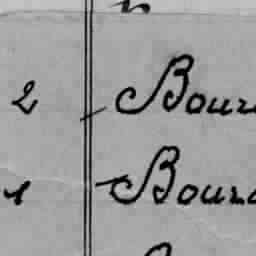 2 Bour
1 Bour